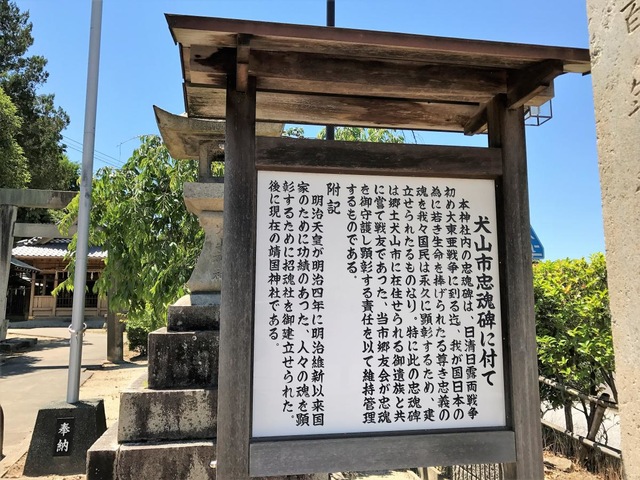 犬山市忠魂碑に付て
本神社内の忠魂碑は、日清日露両戦争
初め大東亜戦争に到る迄、我が国日本の
為に若き生命を捧げられたる尊き忠義の
魂を我々国民は永久に顕彰するため、建
立せられたるものなり、特に此の忠魂碑
は郷土犬山市に在住せられる御遺族と共
に嘗て戦友であった、当市郷友会が忠魂
を御守護し顕彰する責任を以て維持管理
するものである。
附記
明治天皇が明治四年に明治維新以来国
家のために功績のあった、人々の魂を顕
彰するために招魂社を御建立せられた。
後に現在の靖国神社である。
奉納